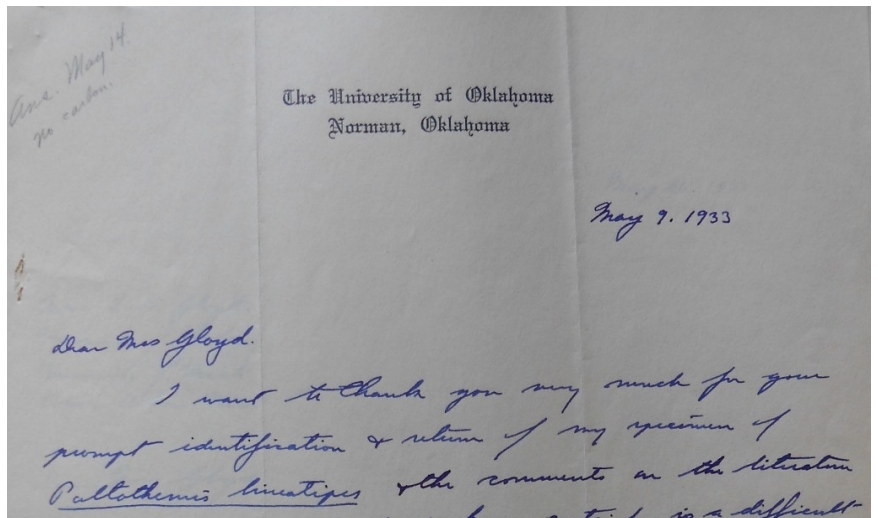 Ans. May 14.
no carbon.
The University of Oklahoma
Norman, Oklahoma
May 9. 1933
Dear Mrs Gloyd.
I want to thank you very much for your
prompt identification & return of my specimen of
Paltothemis lineatipes & the comments on the literature
is a difficult